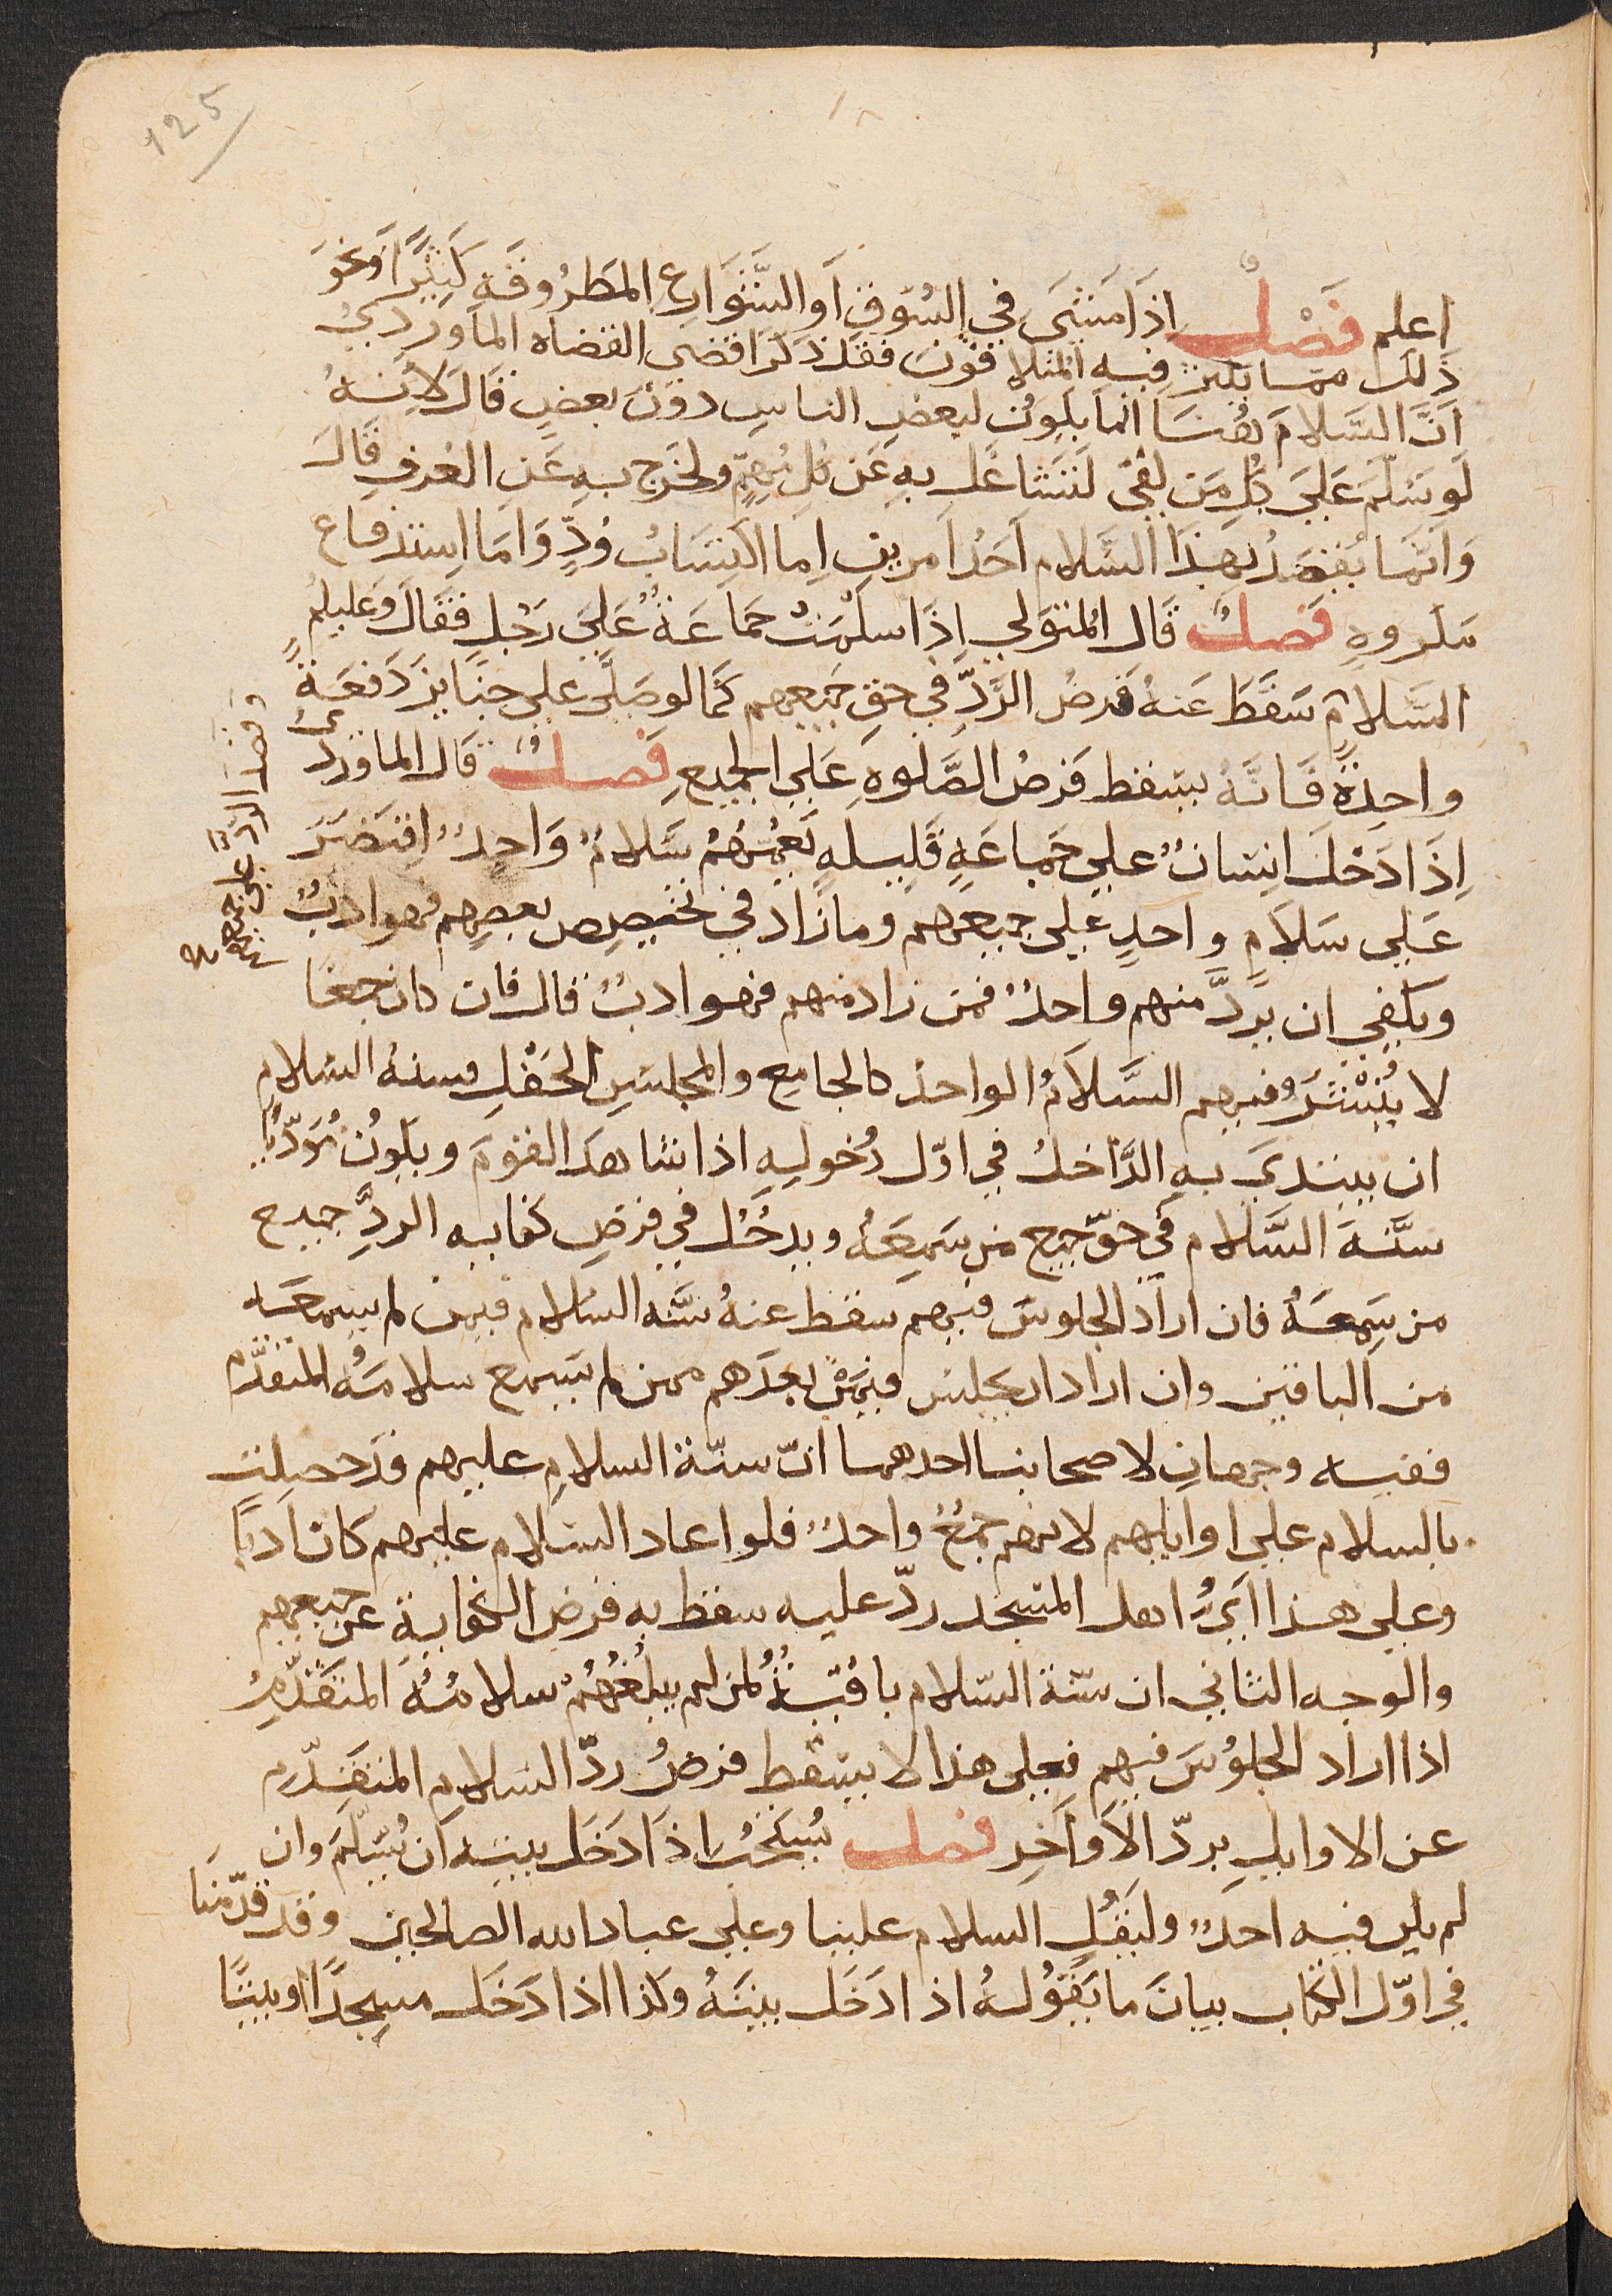 125
اعلم فَصْلٌ اِذَا مَشَى في السُّوقِ اَو الشَّوَارِعِ المَطرُوقَةِ كَثِيرًا وَنحو
ذَلكَ مما يكثر فيه المُتلاقون فقد ذكر اقضى القضاه الماوردي
اَنَّ السَّلامَ هُنَا انما يكون لبعض الناس دون بعض قَالَ لاَنهُ
لَو سَلّمَ عَلَى كلِ مَن لقى لَتَشَاغل به عَن كل مُهِمٍّ ولخرج به عَن العُرفِ قَال
وَانَّما يُقصَدُ بهذا السَّلام اَحَدُ اَمرين اِما اكتِسَابُ وُدٍّ وَاما اِستدفاع
مكروهٍ فَصلٌ قَال المُتَولي اِذَا سلمَتْ جماعَةٌ عَلَى رَجُلٍ فقَالَ وَعليكم
السَّلامُ سَقَطَ عَنهُ فَرضُ الرَّدِّ في حق جَميعهم كَما لو صَلّى على جنَايز دَفعَةً
واحِدَةً فَانَّهُ يسَقط فَرضُ الصَّلوةِ عَلى الجَميعِ فَصلٌ قَال الماوردى
اِذَا دَخل انسَانٌ على جَماعَةٍ قَليلهٍ يَعمّهُم سَلامٌ وَاحدٌ اقتَصَرَ
عَلى سَلامٍ واحدٍ على جميعهم وما زاد في تخصيص بعضِهم فهو ادبٌ
ويكفى ان يردَّ منهم واحدٌ فمن زاد منهم فهو ادبٌ قال فان كان جمعًا
لا يُنْتَشَرُ فيهم السَّلاَمُ الواحد كالجامع والمجلسِ الحَفْلِ فسنة السّلام
ان يبتدى به الدَّاخلُ في اوّل دُخوله اذا شاهدَ القوَمَ ويكونُ مُؤدّيًا
سنَّةَ السَّلامِ في حَقّ جميع من سَمِعَهُ ويدخُل في فرضِ كفاية الردِّ جميع
من سَمِعَهُ فان اراد الجلوسَ فيهم سقط عنهُ سنَّة السّلام فيمن لم يسمعه
من الباقين وان اراد ان يجلس فيمَن بعدهم ممن لم يسمع سلامَهُ المتقدّم
ففيه وجهانِ لاصحابنا احدهما انّ سنّة السلامِ عليهم قد حصلت
بالسلام على اوايلهم لانهم جمعٌ واحدٌ فلو اعاد السّلام عليهم كان ادبًا
وعلى هذا ايُّ اهل المسَجد ردّ عليه سقط به فرض الكفاية عن جميعهم
والوجه الثاني ان سنّة السّلام باقيَةٌ لمن لم يبلُغهُم سلامُهُ المتَقدّمِ
اذا اراد الجلوُسَ فيهم فعلى هذا لا يسَقط فرضُ ردّ السّلامِ المتقَدّم
عن الاوايلِ بردّ الاَوَاخِرِ فصل يُستَحَبُّ اذَا دَخَل بيتهُ ان يُسَلّمَ وان
لم يكن فيه احدٌ وليَقُلِ السلام علينا وعلى عباد الله الصالحين وقد قدّمنَا
في اوّل الكتاب بيانَ ما يَقُولهُ اذا دَخَل بيتَهُ وكذا اذا دَخَل مسجدًا او بيتًا
وفرض الرَّدِّ على جميعهم